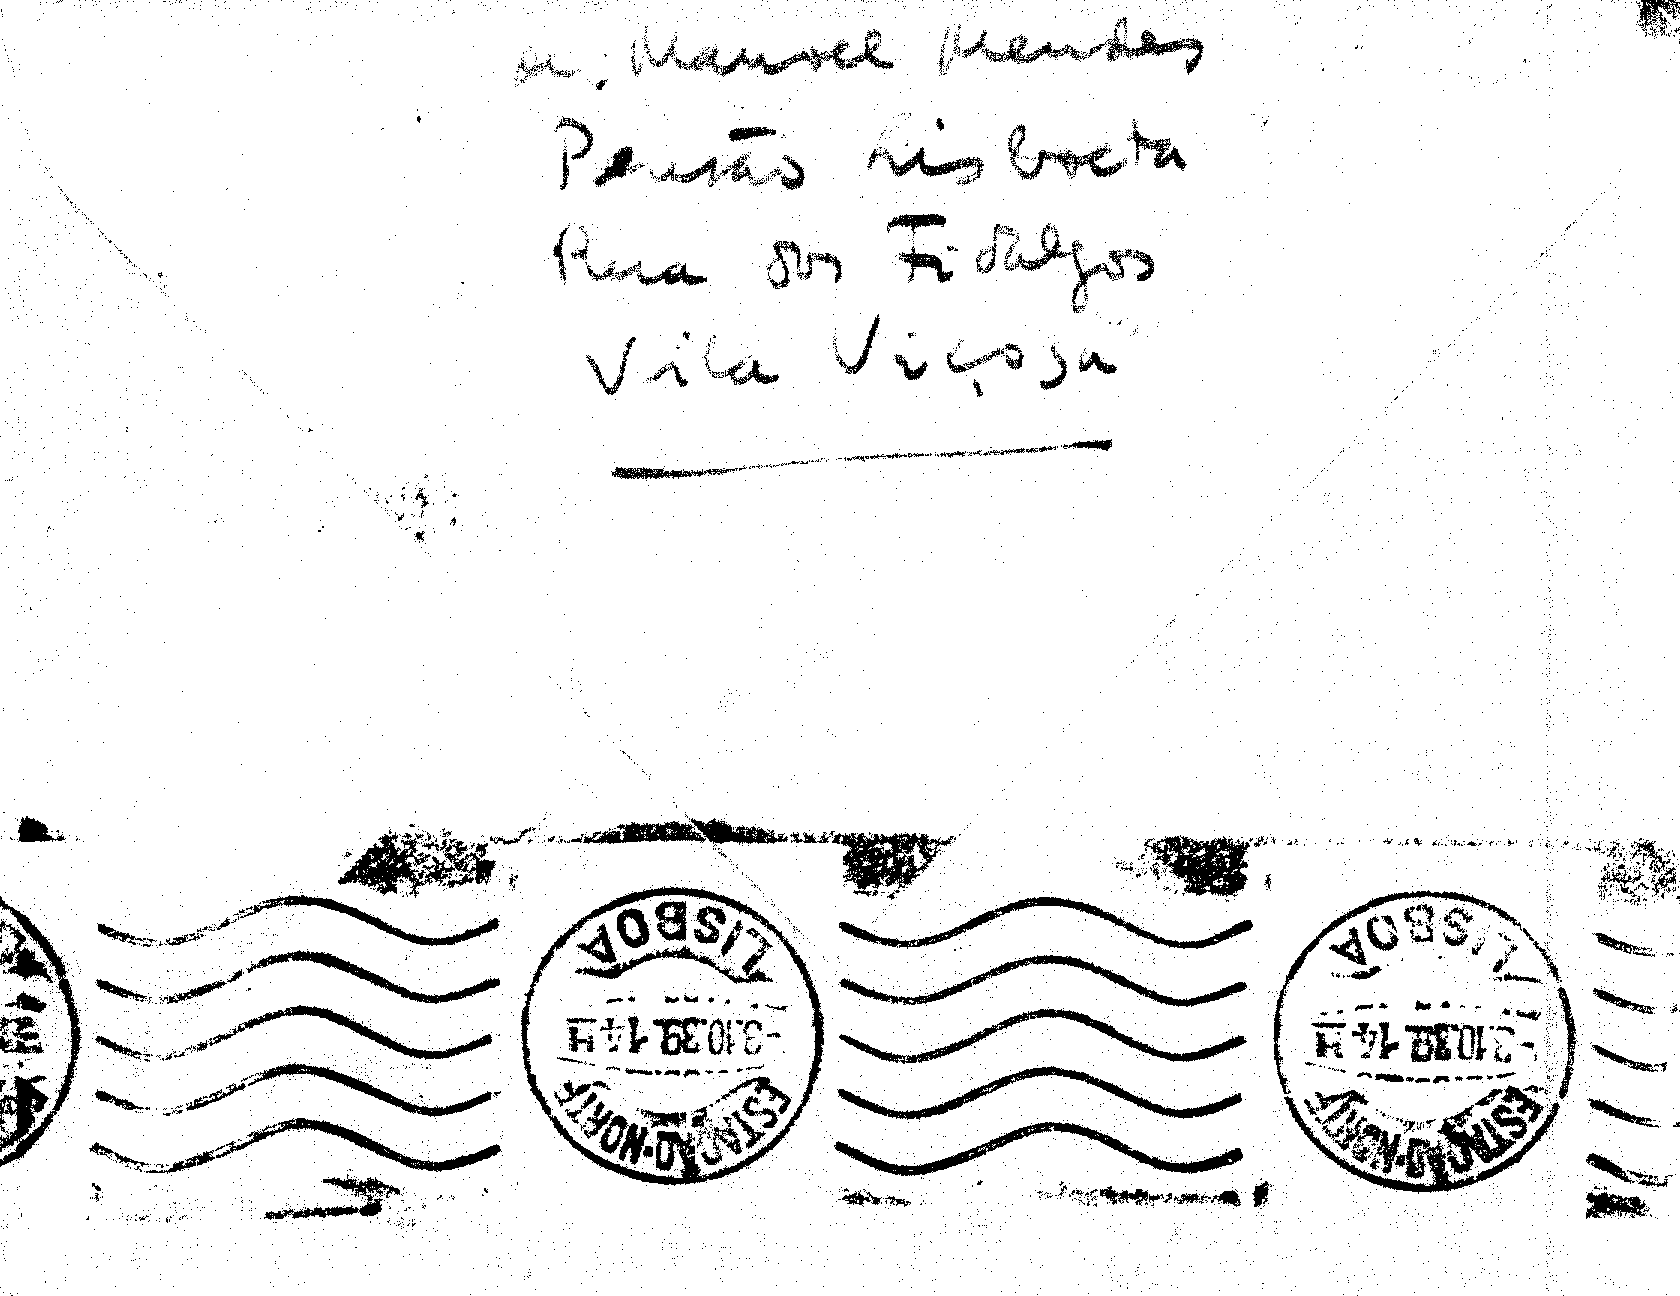 Sr. Manoel Mendes
Pensão Lisboeta
Rua dos Fidalgos
Vila Viçosa
LISBOA
-3.10.39 14 H
ESTAÇÃO-NORTE
LISBOA
-3.10.39 14 H
ESTAÇÃO-NORTE